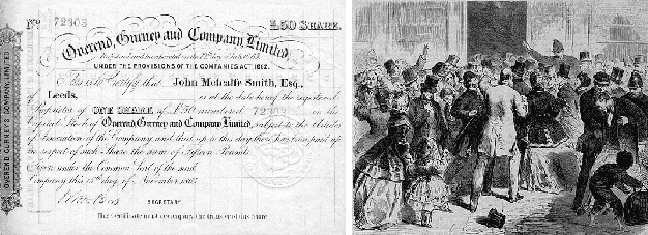 No 72303 £50 SHARE.
Overend, Gurney and Company, Limited
UNDER THE PROVISIONS OF THE COMPANIES ACT 1862.
This is to Certify that John Metcalfe Smith, Esq.,
of Leeds is at the date hereof the registered
Proprietor of ONE SHARE of £50 numbered 72303 in the
Capital Stock of Overend, Gurney and Company, Limited, subject to the Articles
of Association of the Company and that up to this day there has been paid up
in respect of such Share the sum of Fifteen Pounds
Given under the Common Seal of the said
Company this day of November 1865
SECRETARY
This Certificate must accompany the transfer of this Share
OVEREND, GURNEY & COMPANY, LIMITED